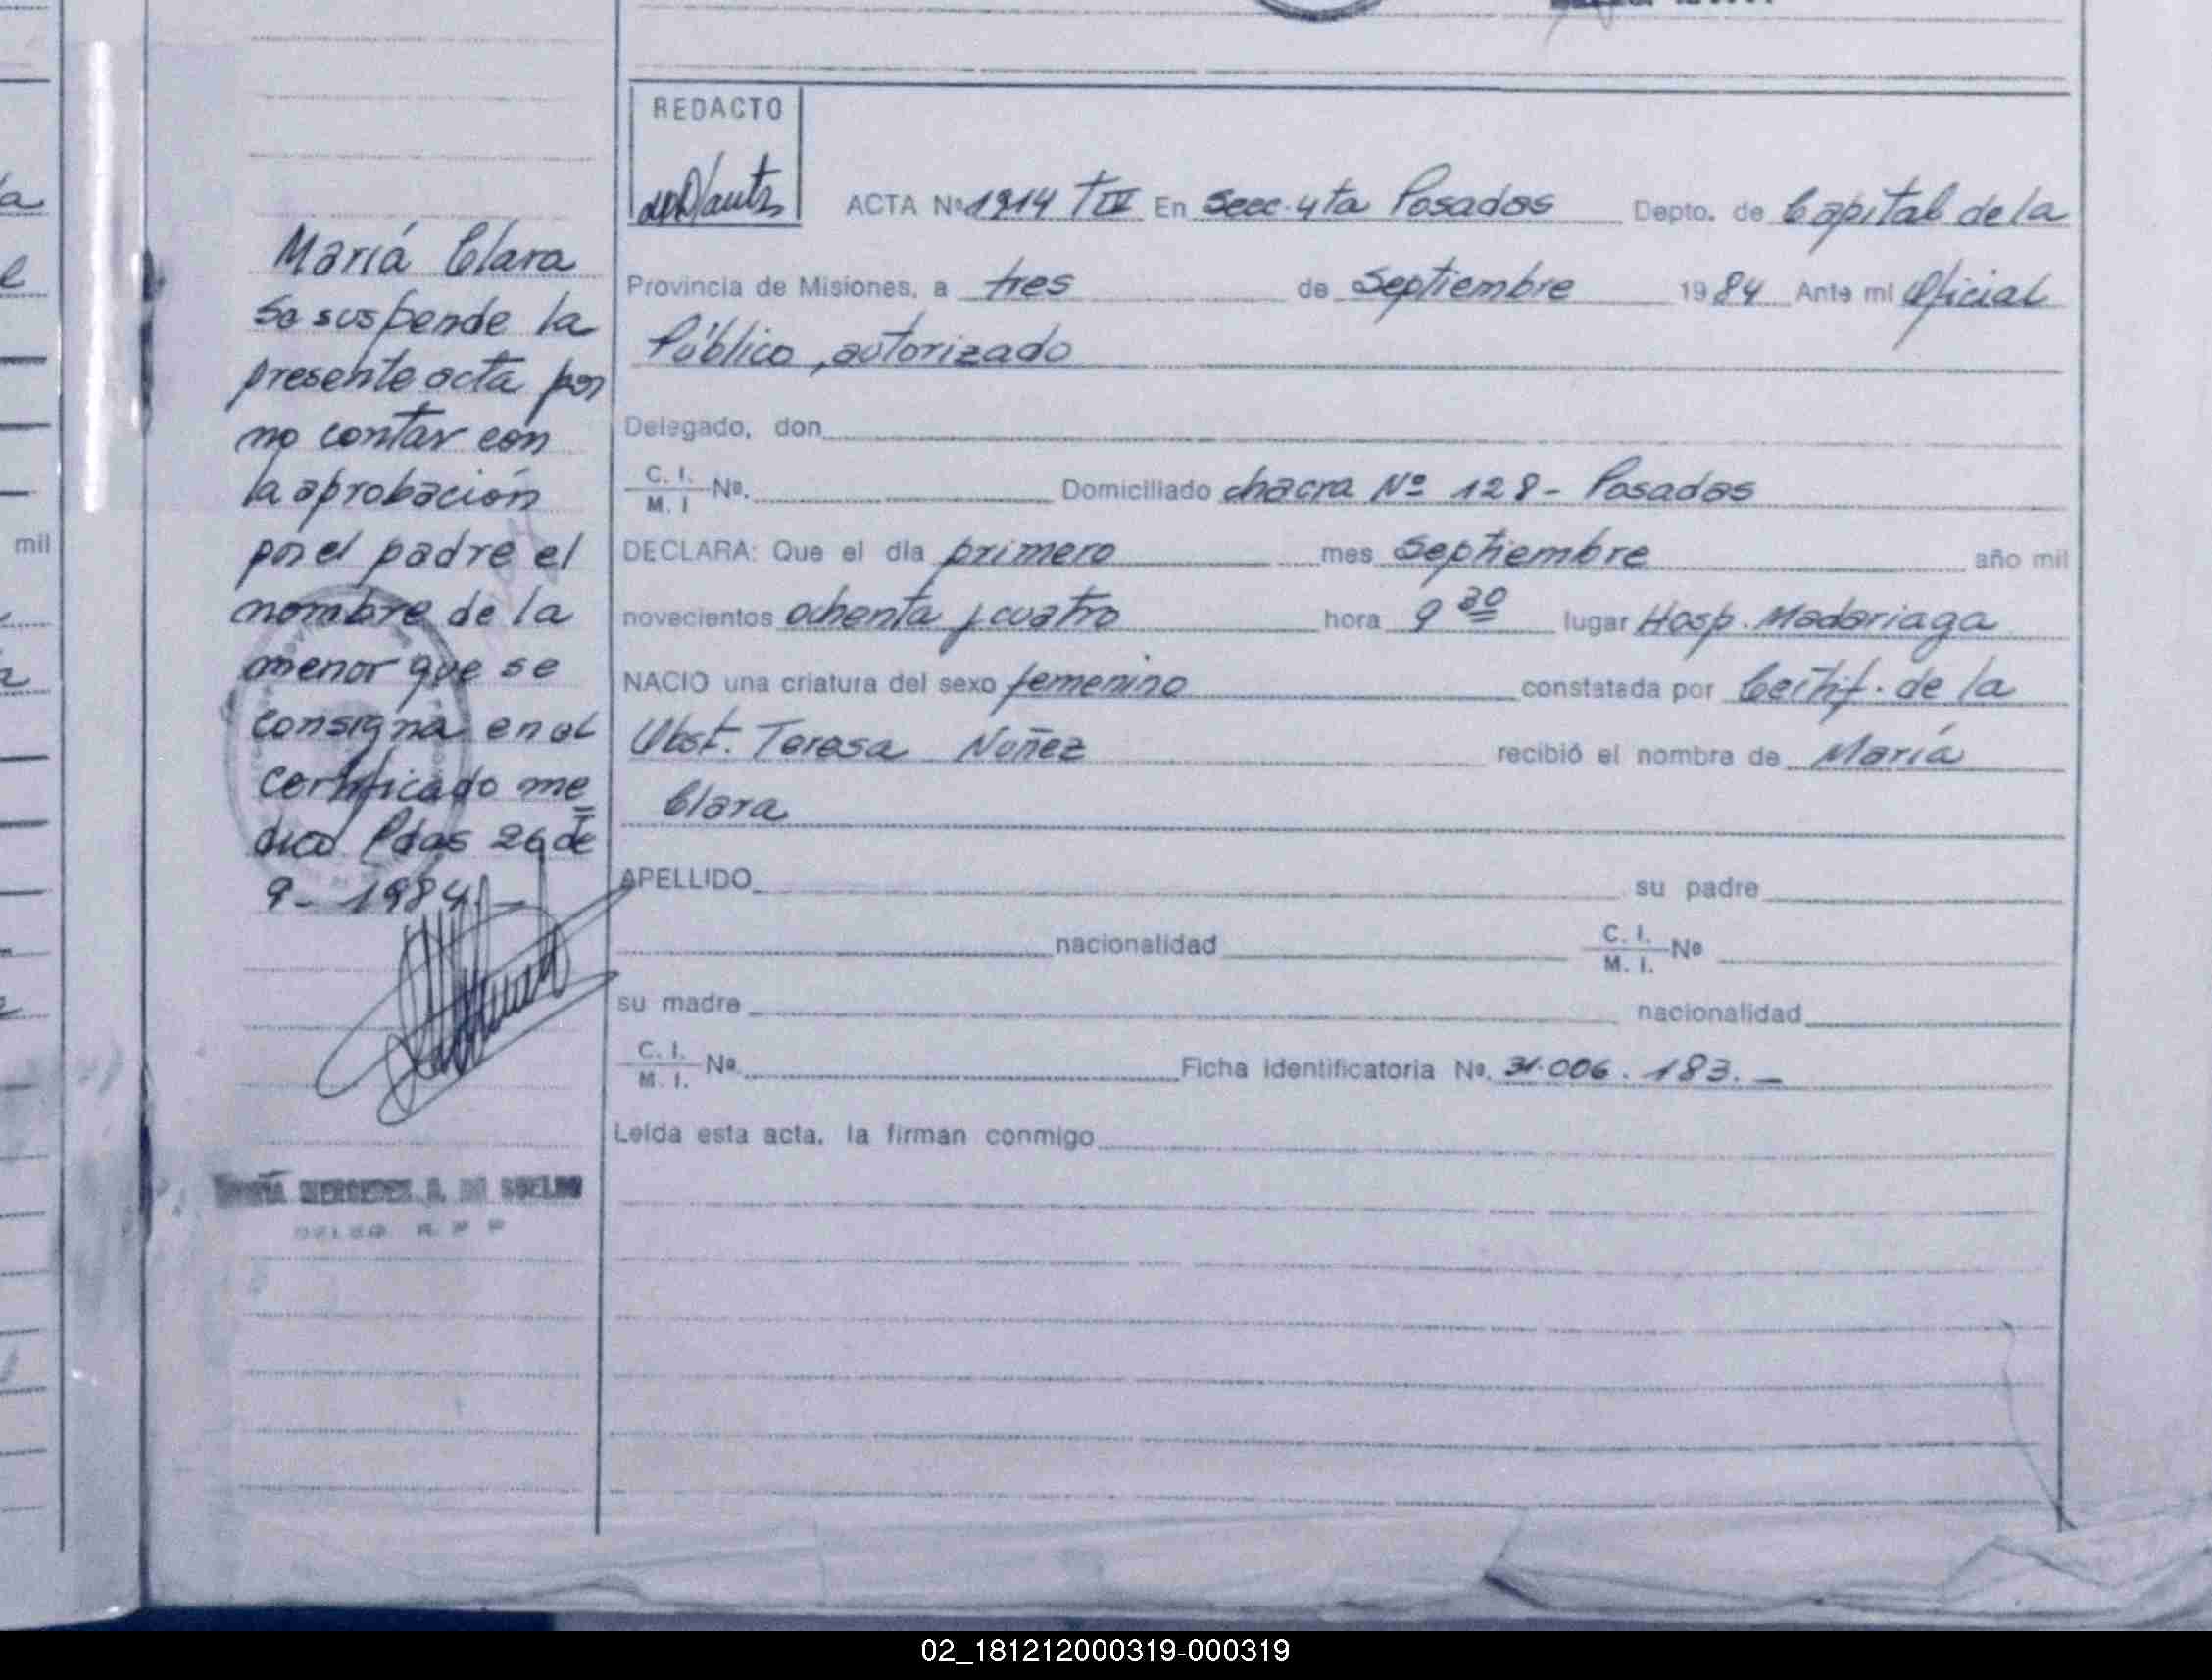 a
e
mil
María Clara
se suspende la
presente acta por
no contar con
la aprobación
por el padre el
nombre de la
menor que se
consigna en el
certificado me
dico Pdas 26 de
9 - 1984 -
MERCEDES
REDACTO
ACTA Nº 1914 TIV En Secc. 4ta Posadas Depto. de Capital de la
Provincia de Misiones, a tres de Septiembre 1984 Ante mi Oficial
Público, autorizado
Delegado, don
C. I.
M. I Nº. Domiciliado chacra Nº 128 - Posadas
DECLARA: Que el día primero mes septiembre año mil
novecientos ochenta y cuatro hora 9 30 lugar Hosp. Madariaga
NACIO una criatura del sexo femenino constatada por Certif. de la
Obst. Teresa Nuñez recibió el nombre de María
Clara
APELLIDO su padre
nacionalidad C. I.
M. I. Nº
su madre nacionalidad
C. I.
M. I. Nº. Ficha identificatoria Nº. 31.006.183. -
Leída esta acta, la firman conmigo
02_181212000319-000319